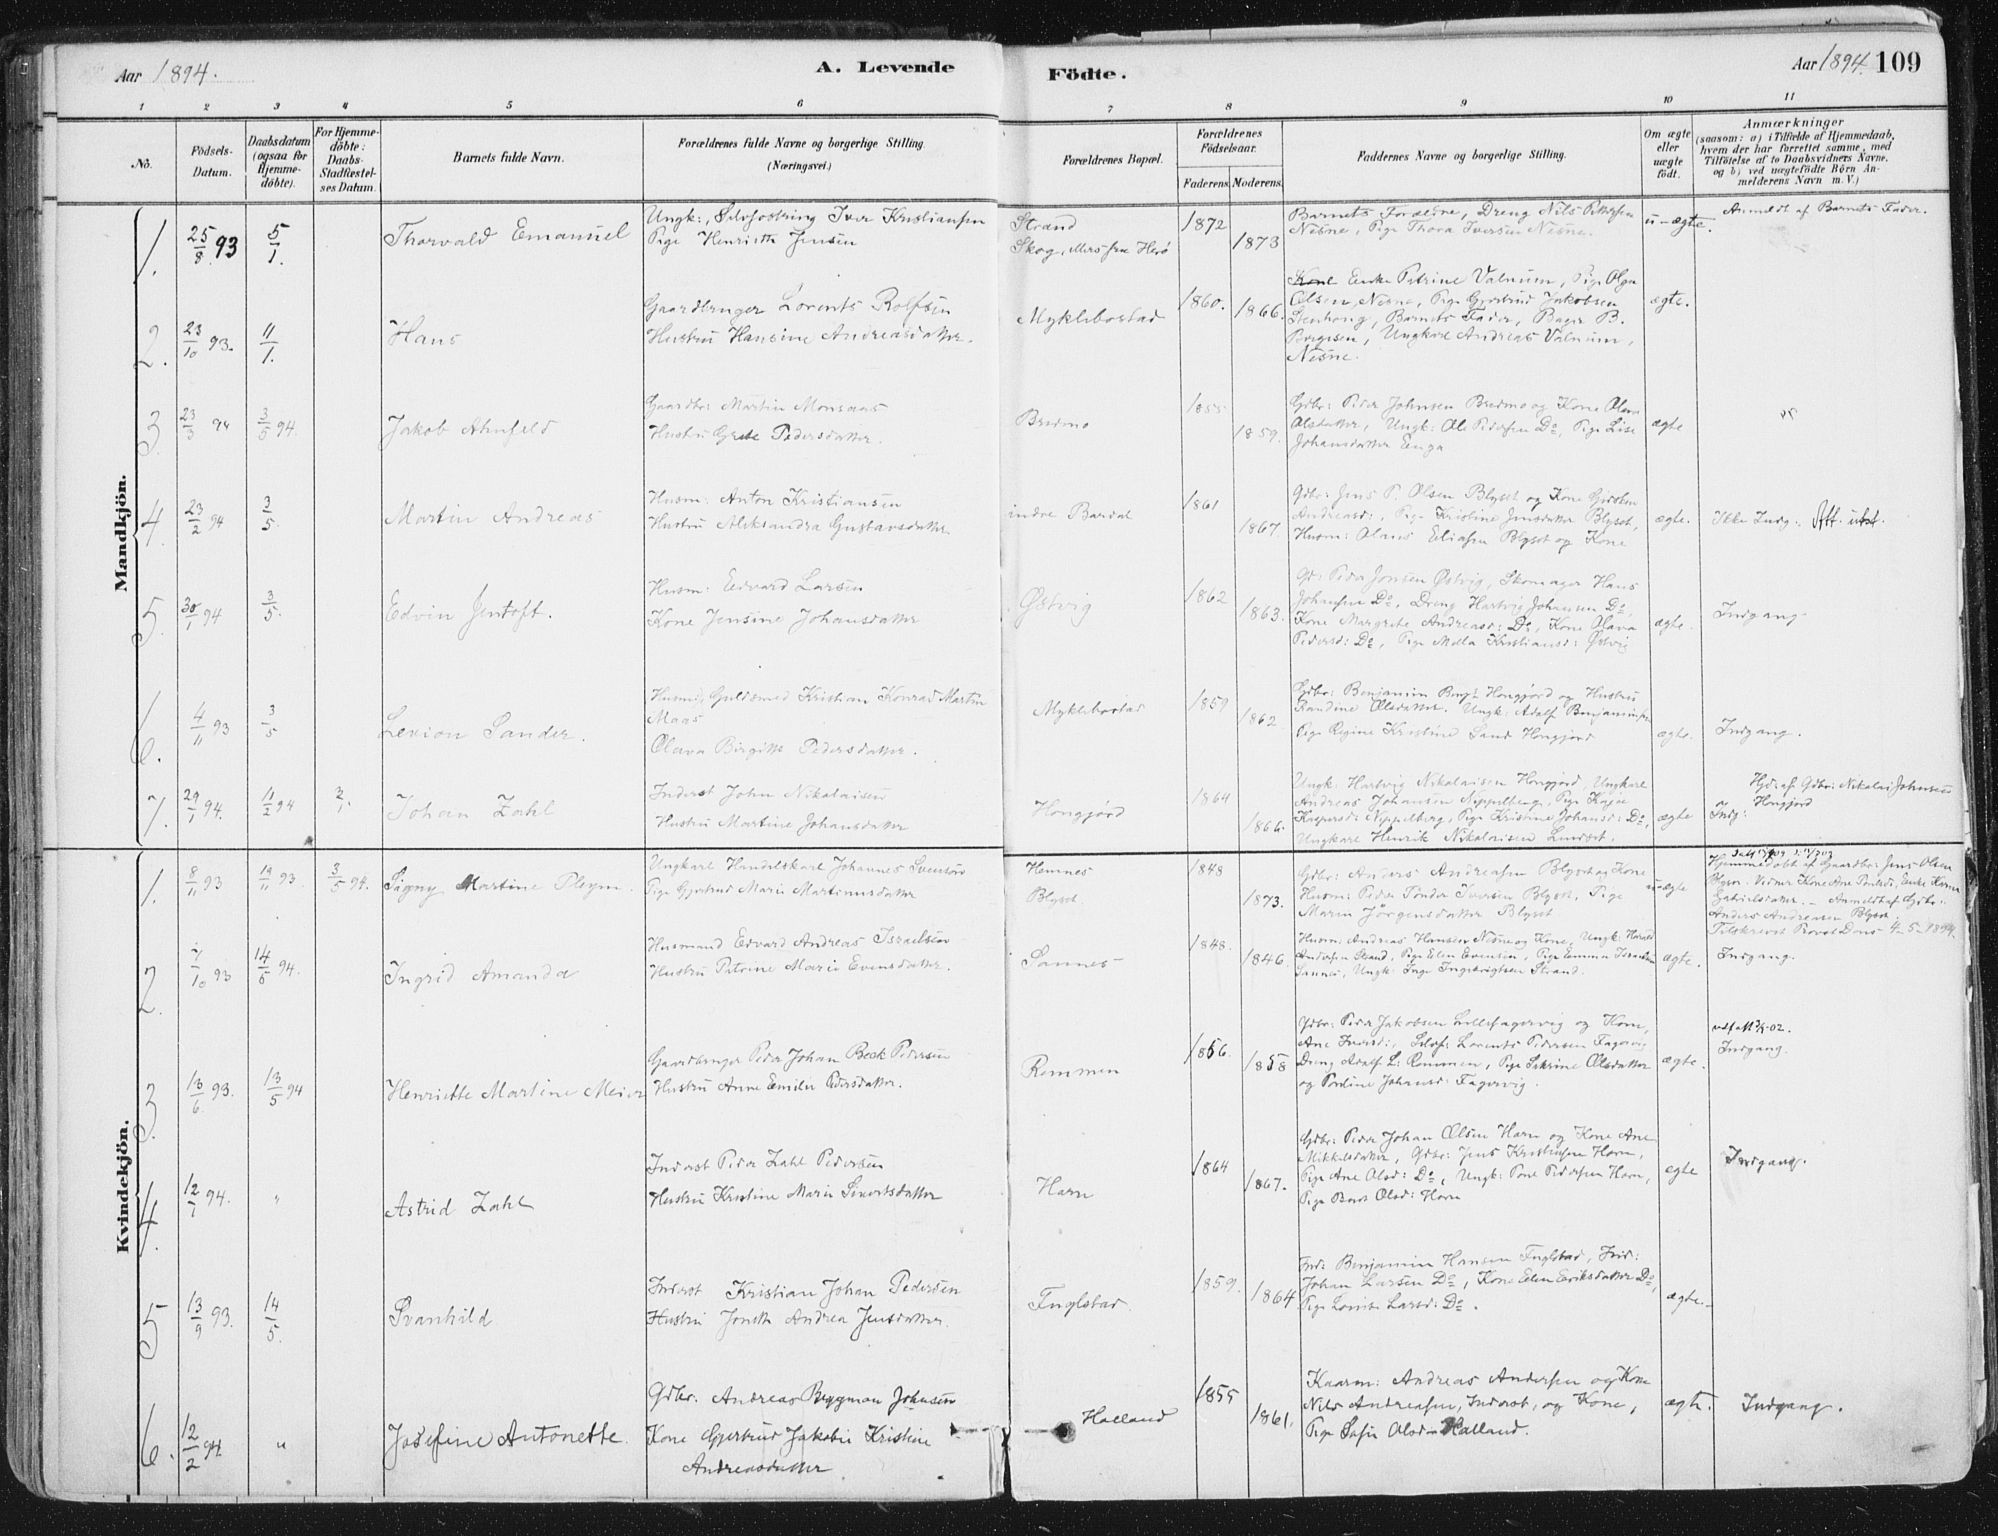 Aar 1894.
A. Levende
Födte.
Aar 1894. 109
1 2 3 4 5 6 7 8 9 10 11
No.
Födsels-Datum.
Daabsdatum (ogsaa for Hjemme-döbte).
For Hjemme-döbte: Daabs-Stadfæstel-ses Datum.
Barnets fulde Navn.
Forældrenes fulde Navne og borgerlige Stilling. (Næringsvei.)
Forældrenes Bopæl.
Forældrenes Födselsaar.
Faderens. Moderens.
Faddernes Navne og borgerlige Stilling.
Om ægte eller uægte födt.
Anmærkninger
(saasom: a) i Tilfælde af Hjemmedaab,
hvem der har forrettet samme, med
Tilföielse af to Daabsvidners Navne.
og b) ved uægtefödte Börn An-
melderens Navn m. V.)
Mandkjön.
1. 25/8 93 5/1. Thorvald Emanuel
Ungk:, Selvfostring Iver Kristiansen
Pige Henriette Jensen
Strand
Skog, Herø
1872 1873
Barnets Forældre, Dreng Nils Pettersen
Nesne, Pige Thora Iversen Nesne.
u-ægte. Anmeldt af Barnets Fader.
2. 23/10 93. 11/1. Hans
Gaardbruger Lorents Rolfsen
Hustru Hansine Andreasdatter.
Myklebostad
1860. 1866.
Kone Enke Petrine Valnum, Pige Olga
Olsen, Nesne, Pige Gjertrud Jakobsen
Barnets Fader, Bager B.
Borgesen, Ungkarl Andreas Valnum,
Nesne.
ægte.
3. 23/3 94 3/5 94. Jakob Ahnfeld
Gaardbr: Martin Monsaas
Hustru Grete Pedersdatter.
Bredmo
1855 1859.
Gdbr: Peder Johnsen Bredmo og Kone Olava
Olsdatter, Ungk: Ole Pedersen Do, Pige Lise
Johansdatter Enga
ægte
4. 23/2 94 3/5. Martin Andreas
Husm: Anton Kristiansen
Hustru Aleksandra Gustavsdatter
indre Bardal
1861 1867.
Gdbr: Jens P. Olsen Blyset og Kone
Andreasd:, Pige Kristine Jensdatter Blyset,
Husm: Olaus Eliasen Blyset og Kone
ægte. Ikke Indg: Att. utst.
5. 30/1 94 3/5. Edvin Jentoft.
Husm: Edvard Larsen
Kone Jensine Johansdatter
Østvig
1862 1863.
Gd: Peder Jonsen Østvig, Skomager Hans
Johansen Do, Dreng Hartvig Johansen Do,
Kone Margrete Andreasd: Do, Kone Olava
Pedersd: Do, Pige Mella Kristiansd: Østvig
ægte. Indgang
6. 4/11 93 3/5 Lexion Sander.
Husmd, Guldsmed Kristian Konrad Martin
Maas
Olava Birgitte Pedersdatter.
Myklebostad
1859 1862.
Gdbr: Benjamin Bengt. Hongjord og Hustru
Randine Olsdatter. Ungk: Adolf Benjaminsen
Pige Regine Kristine Sand Hongjord
ægte. Indgang.
7. 29/1 94. 11/2 94 Johan Zahl
Inderst John Nikolaisen
Hustru Martine Johansdatter
Hongjord
1864 1866.
Ungk: Hartvig Nikolaisen Hongjord, Ungkarl
Andreas Johansen Nippelberg, Pige Kajse
Kaspersd: Nippelberg, Pige Kristine Johansd: Do,
Ungkarl Henrik Nikolaisen Lindset.
ægte
Hjd: af Gdbr: Nikolai Johnsen
Hongjord
Indg:
Kvindekjön.
1. 8/11 93 19/11 93. 3/5 94. Signy Martine Pleym.
Ungkarl Handelskarl Johannes Svensen
Pige Gjertrud Marie Martinusdatter
Hemnes
Blyset.
1848 1873.
Gdbr: Anders Andreasen Blyset og Kone
Husm: Peder Tønder Iversen Blyset, Pige
Maren Jørgensdatter Blyset
u-ægte
Hjemmedøbt af Gaardbr: Jens Olsen
Blyset. Vidner Kone Ane Poulsd:, Enke Karen
Gabrielsdatter. – Anmeldt af Gdbr:
Anders Andreasen Blyset
Tilskrevet Provst Dons 4-5-1894.
2. 7/10 93 14/5 94. Ingrid Amanda
Husmand Edvard Andreas Israelsen
Hustru Petrine Marie Evensdatter.
Sannes
1848. 1846.
Husm: Andreas Hansen Nesne og Kone, Ungk: Harald
Andersen Strand, Pige Elen Evensen, Pige Emma Israelsen
Sannes, Ungk: Inge Ingebrigtsen Strand.
ægte. Indgang.
3. 13/6 93. 13/5 94 Henriette Martine Meier
Gaardbruger Peder Johan Beck Pedersen
Hustru Anne Emilie Pedersdatter.
Remmen
1856. 1858
Gdbr: Peder Jakobsen Lillefagervig og Kone,
Ane Iversd:, Selvf: Lorents Pedersen Fagervig
Dreng Adolf L: Remmen, Pige Sekrine Olsdatter
og Pauline Johansd: Fagervig.
ægte.
Indgang.
4. 12/1 94. " Astrid Zahl
Inderst Peder Zahl Pedersen
Hustru Kristine Marie Sivertsdatter
Harn
1864 1867.
Gdbr: Peder Johan Olsen Harn og Kone Ane
Mikkelsdatter, Gdbr: Jens Kristensen Harn,
Pige Ane Olsd: Do, Ungk: Tone Pedersen Harn,
Pige Berit Olsd: Harn
ægte Indgang.
5 13/9 93. 14/5. Svanhild
Inderst Kristian Johan Pedersen
Hustru Jonetta Andrea Jensdatter.
Fuglstad.
1859. 1864
Ind: Benjamin Hansen Fuglstad, Ind:
Johan Larsen Do, Kone Elen Eriksdatter Do,
Pige Lovise Larsd: Do.
ægte.
6. 12/2 94. " Josefine Antonette.
Gdbr. Andreas Bergman Johnsen
Kone Gjertrud Jakobie Kristine
Andreasdatter
Halland
1855 1861.
Kaarm: Andreas Andersen og Kone
Nils Andreasen, Inderst, og Kone,
Pige Sofie Olsd– Halland.
ægte. Indgang.